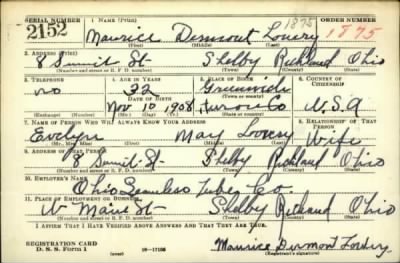 SERIAL NUMBER 1. NAME (Print) ORDER NUMBER
2152 Maurice Dermont Lowery 1875 1875
(First) (Middle) (Last)
2. ADDRESS (Print)
8 Summit St Shelby Richland Ohio
(Number and street or R. F. D. number) (Town) (County) (State)
3. TELEPHONE 4. AGE IN YEARS 5. PLACE OF BIRTH 6. COUNTRY OF CITIZENSHIP
no 32 Greenwich
DATE OF BIRTH (Town or county)
Nov 10 1908 Huron Co U.S.A
(Exchange) (No.) (Mo.) (Day) (Yr.) (State or country)
7. NAME OF PERSON WHO WILL ALWAYS KNOW YOUR ADDRESS 8. RELATIONSHIP OF THAT PERSON
Evelyn May Lowery Wife
(Mr., Mrs., Miss) (First) (Middle) (Last)
9. ADDRESS OF THAT PERSON
8 Summit St Shelby Richland Ohio
(Number and street or R. F. D. number) (Town) (County) (State)
10. EMPLOYER'S NAME
Ohio Seamless Tubes Co.
11. PLACE OF EMPLOYMENT OR BUSINESS
W Main St Shelby Richland Ohio
(Number and street or R. F. D. number) (Town) (County) (State)
I AFFIRM THAT I HAVE VERIFIED ABOVE ANSWERS AND THAT THEY ARE TRUE.
REGISTRATION CARD
D. S. S. Form 1 (over) 16—17105 Maurice Dermont Lowery
(Registrant's signature)